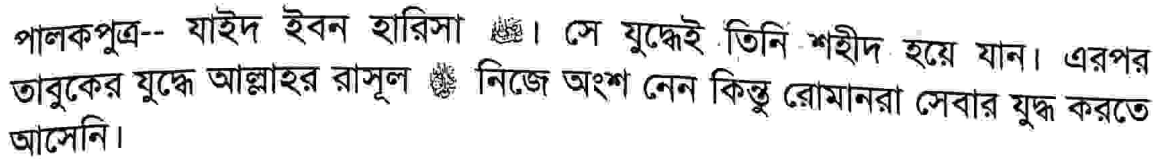 পালকপুত্র-- যাইদ ইবন হারিসা ﷺ। সে যুদ্ধেই তিনি শহীদ হয়ে যান। এরপর
তাবুকের যুদ্ধে আল্লাহর রাসূল ﷺ নিজে অংশ নেন কিন্তু রোমানরা সেবার যুদ্ধ করতে
আসেনি।